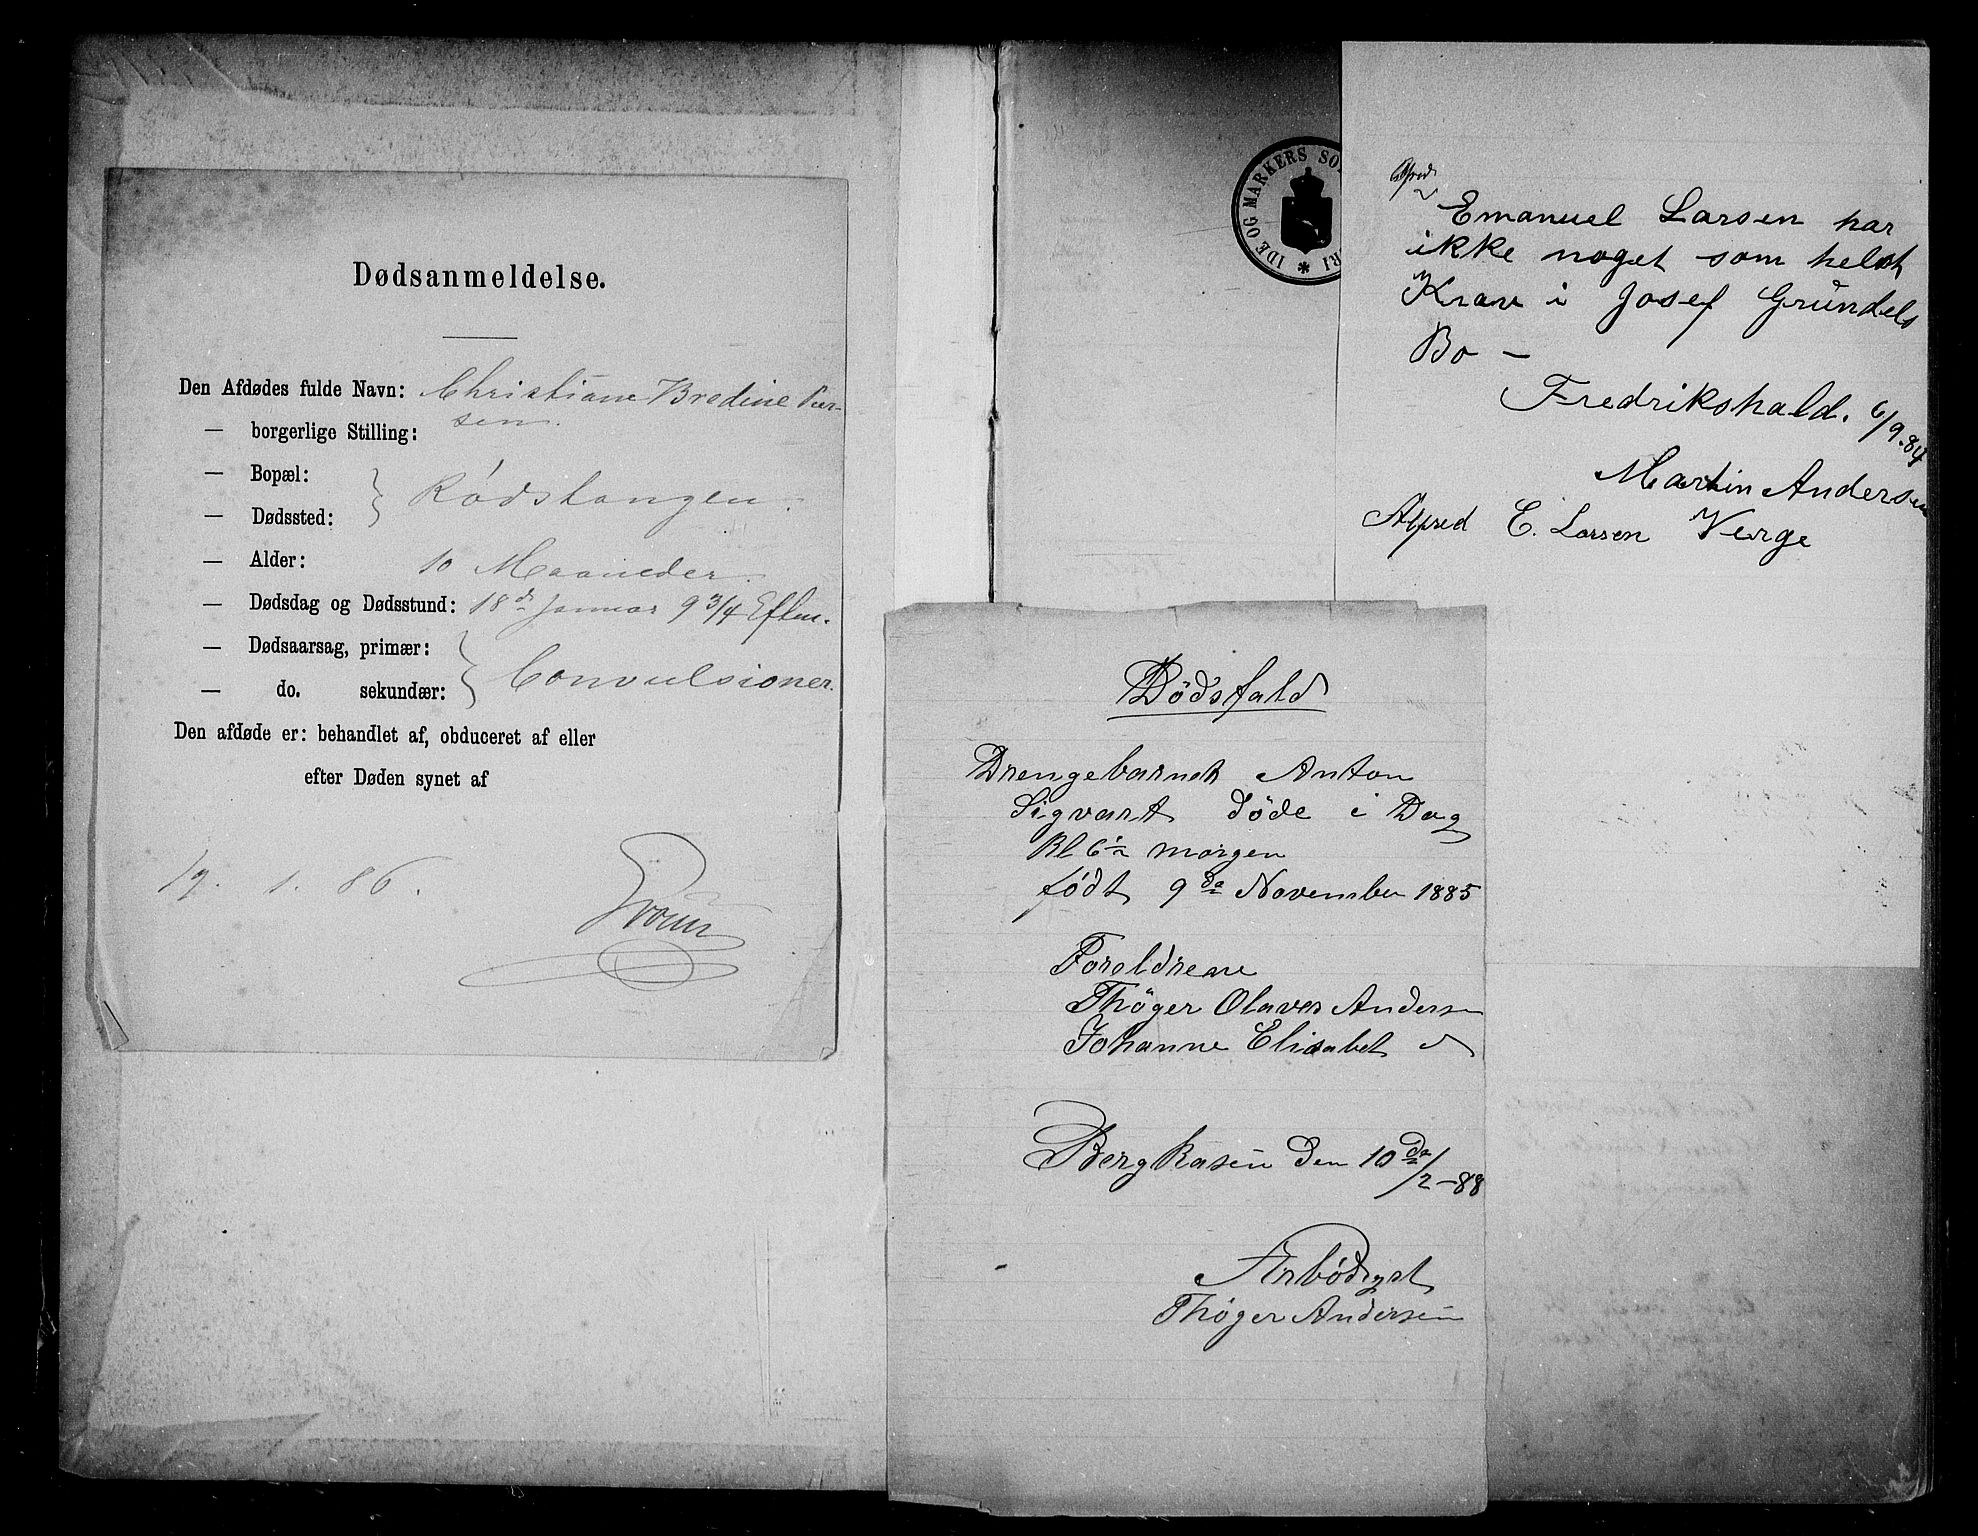 Dødsanmeldelse.
Den Afdødes fulde Navn: Christiane Bredine
— borgerlige Stilling: sen.
— Bopæl:
— Dødssted: Rödstangen.
— Alder: 10 Maaneder.
— Dødsdag og Dødsstund: 18de Januar 9 3/4 Efterm.
— Dødsaarsag, primær:
— do. sekundær: Convulsioner.
Den afdøde er: behandlet af, obduceret af eller
efter Døden synet af
19. 1. 86.
IDE OG MARKERS SO
RI
Alfred
Emanuel Larsen har
ikke noget som helst
Krav i Josef Gründels
Bo —
Fredrikshald. 6/9.84
Martin Andersen
Alfred E. Larsen Verge
Dödsfald
Drengebarnet Anton
Sigvart döde i Dag
Kl 6½ morgen
födt 9de November 1885
Foreldrene
Thöger Olaves Andersen
Johanne Elisabet
den 10de/2-88
Ærbödigst
Thöger Andersen